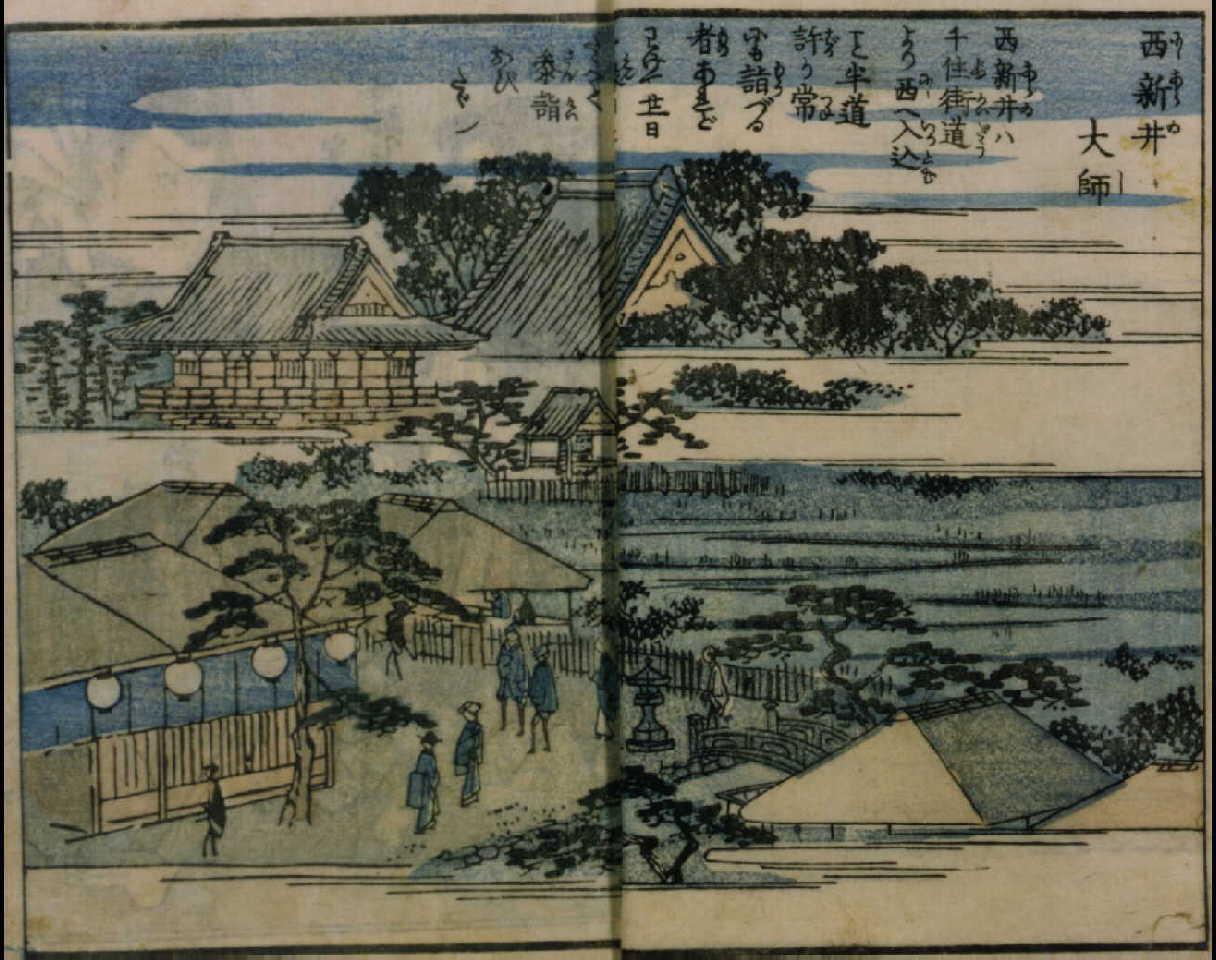 西新井
大師
西新井ハ
千住街道
より西へ入込
こと半道
許り常
にも詣づる
者あれど
廿一日
参詣
おび
たゞし